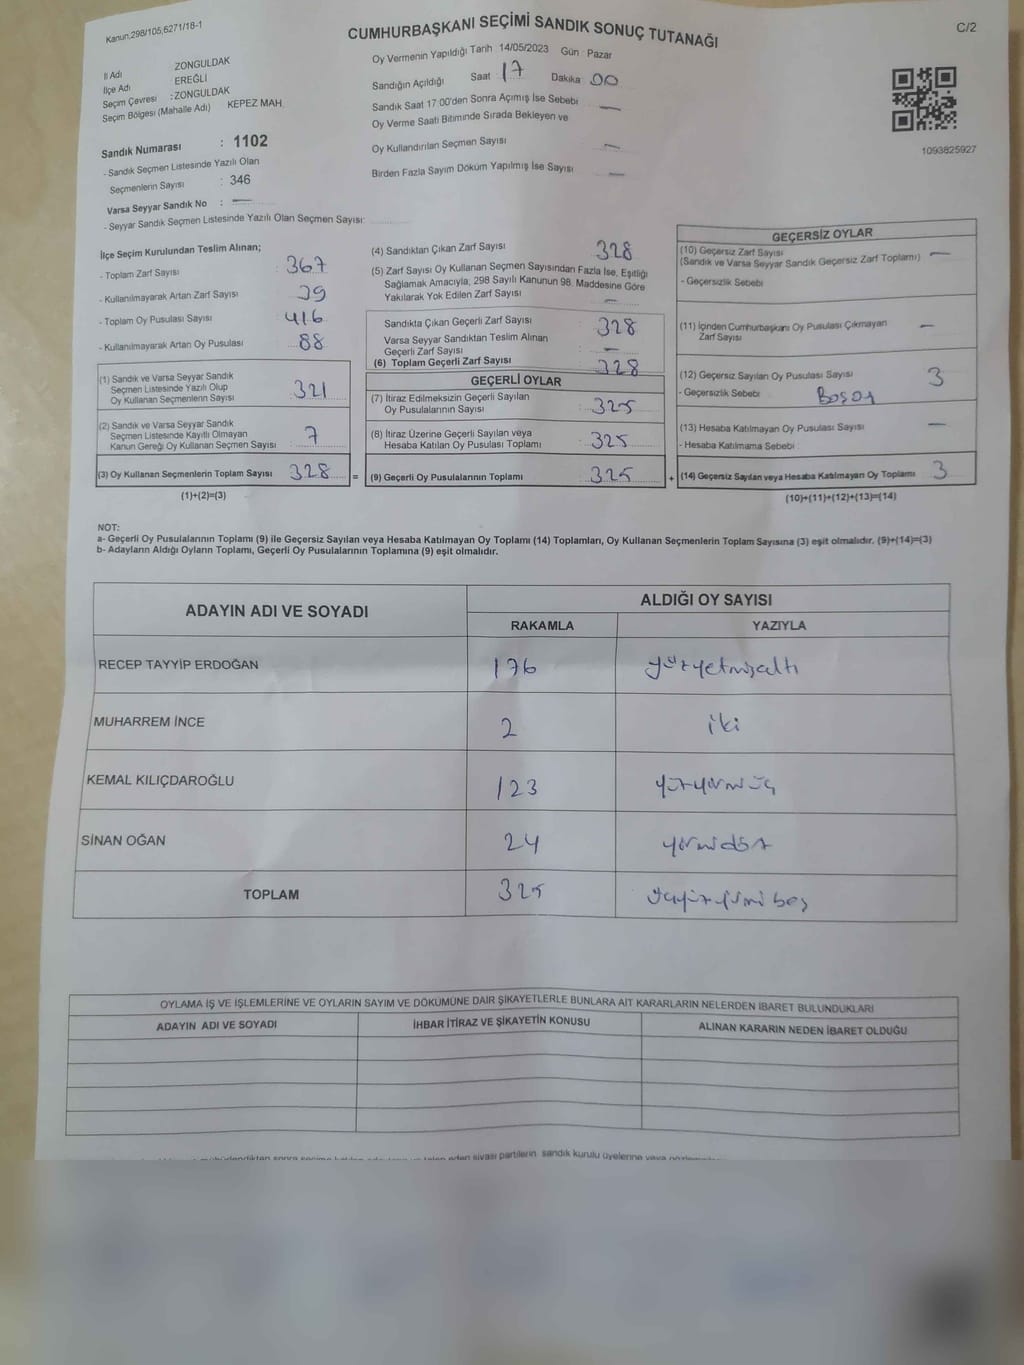 Kanun,298/105,6271/18-1
CUMHURBAŞKANI SEÇİMİ SANDIK SONUÇ TUTANAĞI
C/2
İl Adı ZONGULDAK
İlçe Adı EREĞLİ
Seçim Çevresi :ZONGULDAK
Seçim Bölgesi (Mahalle Adı) KEPEZ MAH.
Sandık Numarası : 1102
- Sandık Seçmen Listesinde Yazılı Olan
Seçmenlerin Sayısı : 346
Varsa Seyyar Sandık No : —
- Seyyar Sandık Seçmen Listesinde Yazılı Olan Seçmen Sayısı:
Oy Vermenin Yapıldığı Tarih 14/05/2023 Gün : Pazar
Sandığın Açıldığı Saat 17 Dakika 00
Sandık Saat 17:00'den Sonra Açımış İse Sebebi —
Oy Verme Saati Bitiminde Sırada Bekleyen ve
Oy Kullandırılan Seçmen Sayısı —
Birden Fazla Sayım Döküm Yapılmış İse Sayısı —
1093825927
İlçe Seçim Kurulundan Teslim Alınan;
- Toplam Zarf Sayısı : 367
- Kullanılmayarak Artan Zarf Sayısı : 39
- Toplam Oy Pusulası Sayısı : 416
- Kullanılmayarak Artan Oy Pusulası : 88
(1) Sandık ve Varsa Seyyar Sandık
Seçmen Listesinde Yazılı Olup
Oy Kullanan Seçmenlerin Sayısı : 321
(2) Sandık ve Varsa Seyyar Sandık
Seçmen Listesinde Kayıtlı Olmayan
Kanun Gereği Oy Kullanan Seçmen Sayısı : 7
(3) Oy Kullanan Seçmenlerin Toplam Sayısı : 328 =
(1)+(2)=(3)
(4) Sandıktan Çıkan Zarf Sayısı : 328
(5) Zarf Sayısı Oy Kullanan Seçmen Sayısından Fazla İse, Eşitliği
Sağlamak Amacıyla, 298 Sayılı Kanunun 98. Maddesine Göre
Yakılarak Yok Edilen Zarf Sayısı : —
Sandıkta Çıkan Geçerli Zarf Sayısı : 328
Varsa Seyyar Sandıktan Teslim Alınan
Geçerli Zarf Sayısı : —
(6) Toplam Geçerli Zarf Sayısı : 328
GEÇERLİ OYLAR
(7) İtiraz Edilmeksizin Geçerli Sayılan
Oy Pusulalarının Sayısı : 325
(8) İtiraz Üzerine Geçerli Sayılan veya
Hesaba Katılan Oy Pusulası Toplamı : 325
(9) Geçerli Oy Pusulalarının Toplamı : 325 +
GEÇERSİZ OYLAR
(10) Geçersiz Zarf Sayısı
(Sandık ve Varsa Seyyar Sandık Geçersiz Zarf Toplamı) —
- Geçersizlik Sebebi
(11) İçinden Cumhurbaşkanı Oy Pusulası Çıkmayan
Zarf Sayısı —
(12) Geçersiz Sayılan Oy Pusulası Sayısı 3
- Geçersizlik Sebebi
(13) Hesaba Katılmayan Oy Pusulası Sayısı —
- Hesaba Katılmama Sebebi :
(14) Geçersiz Sayılan veya Hesaba Katılmayan Oy Toplamı 3
(10)+(11)+(12)+(13)=(14)
NOT:
a- Geçerli Oy Pusulalarının Toplamı (9) ile Geçersiz Sayılan veya Hesaba Katılmayan Oy Toplamı (14) Toplamları, Oy Kullanan Seçmenlerin Toplam Sayısına (3) eşit olmalıdır. (9)+(14)=(3)
b- Adayların Aldığı Oyların Toplamı, Geçerli Oy Pusulalarının Toplamına (9) eşit olmalıdır.
ADAYIN ADI VE SOYADI ALDIĞI OY SAYISI
RAKAMLA YAZIYLA
RECEP TAYYİP ERDOĞAN 176 yüzyetmişaltı
MUHARREM İNCE 2 iki
KEMAL KILIÇDAROĞLU 123 yüzyirmiüç
SİNAN OĞAN 24 yirmidört
TOPLAM 325 üçyüzyirmi beş
OYLAMA İŞ VE İŞLEMLERİNE VE OYLARIN SAYIM VE DÖKÜMÜNE DAİR ŞİKAYETLERLE BUNLARA AİT KARARLARIN NELERDEN İBARET BULUNDUKLARI
ADAYIN ADI VE SOYADI İHBAR İTİRAZ VE ŞİKAYETİN KONUSU ALINAN KARARIN NEDEN İBARET OLDUĞU
siyasi partilerin sandık kurulu üyelerine veya